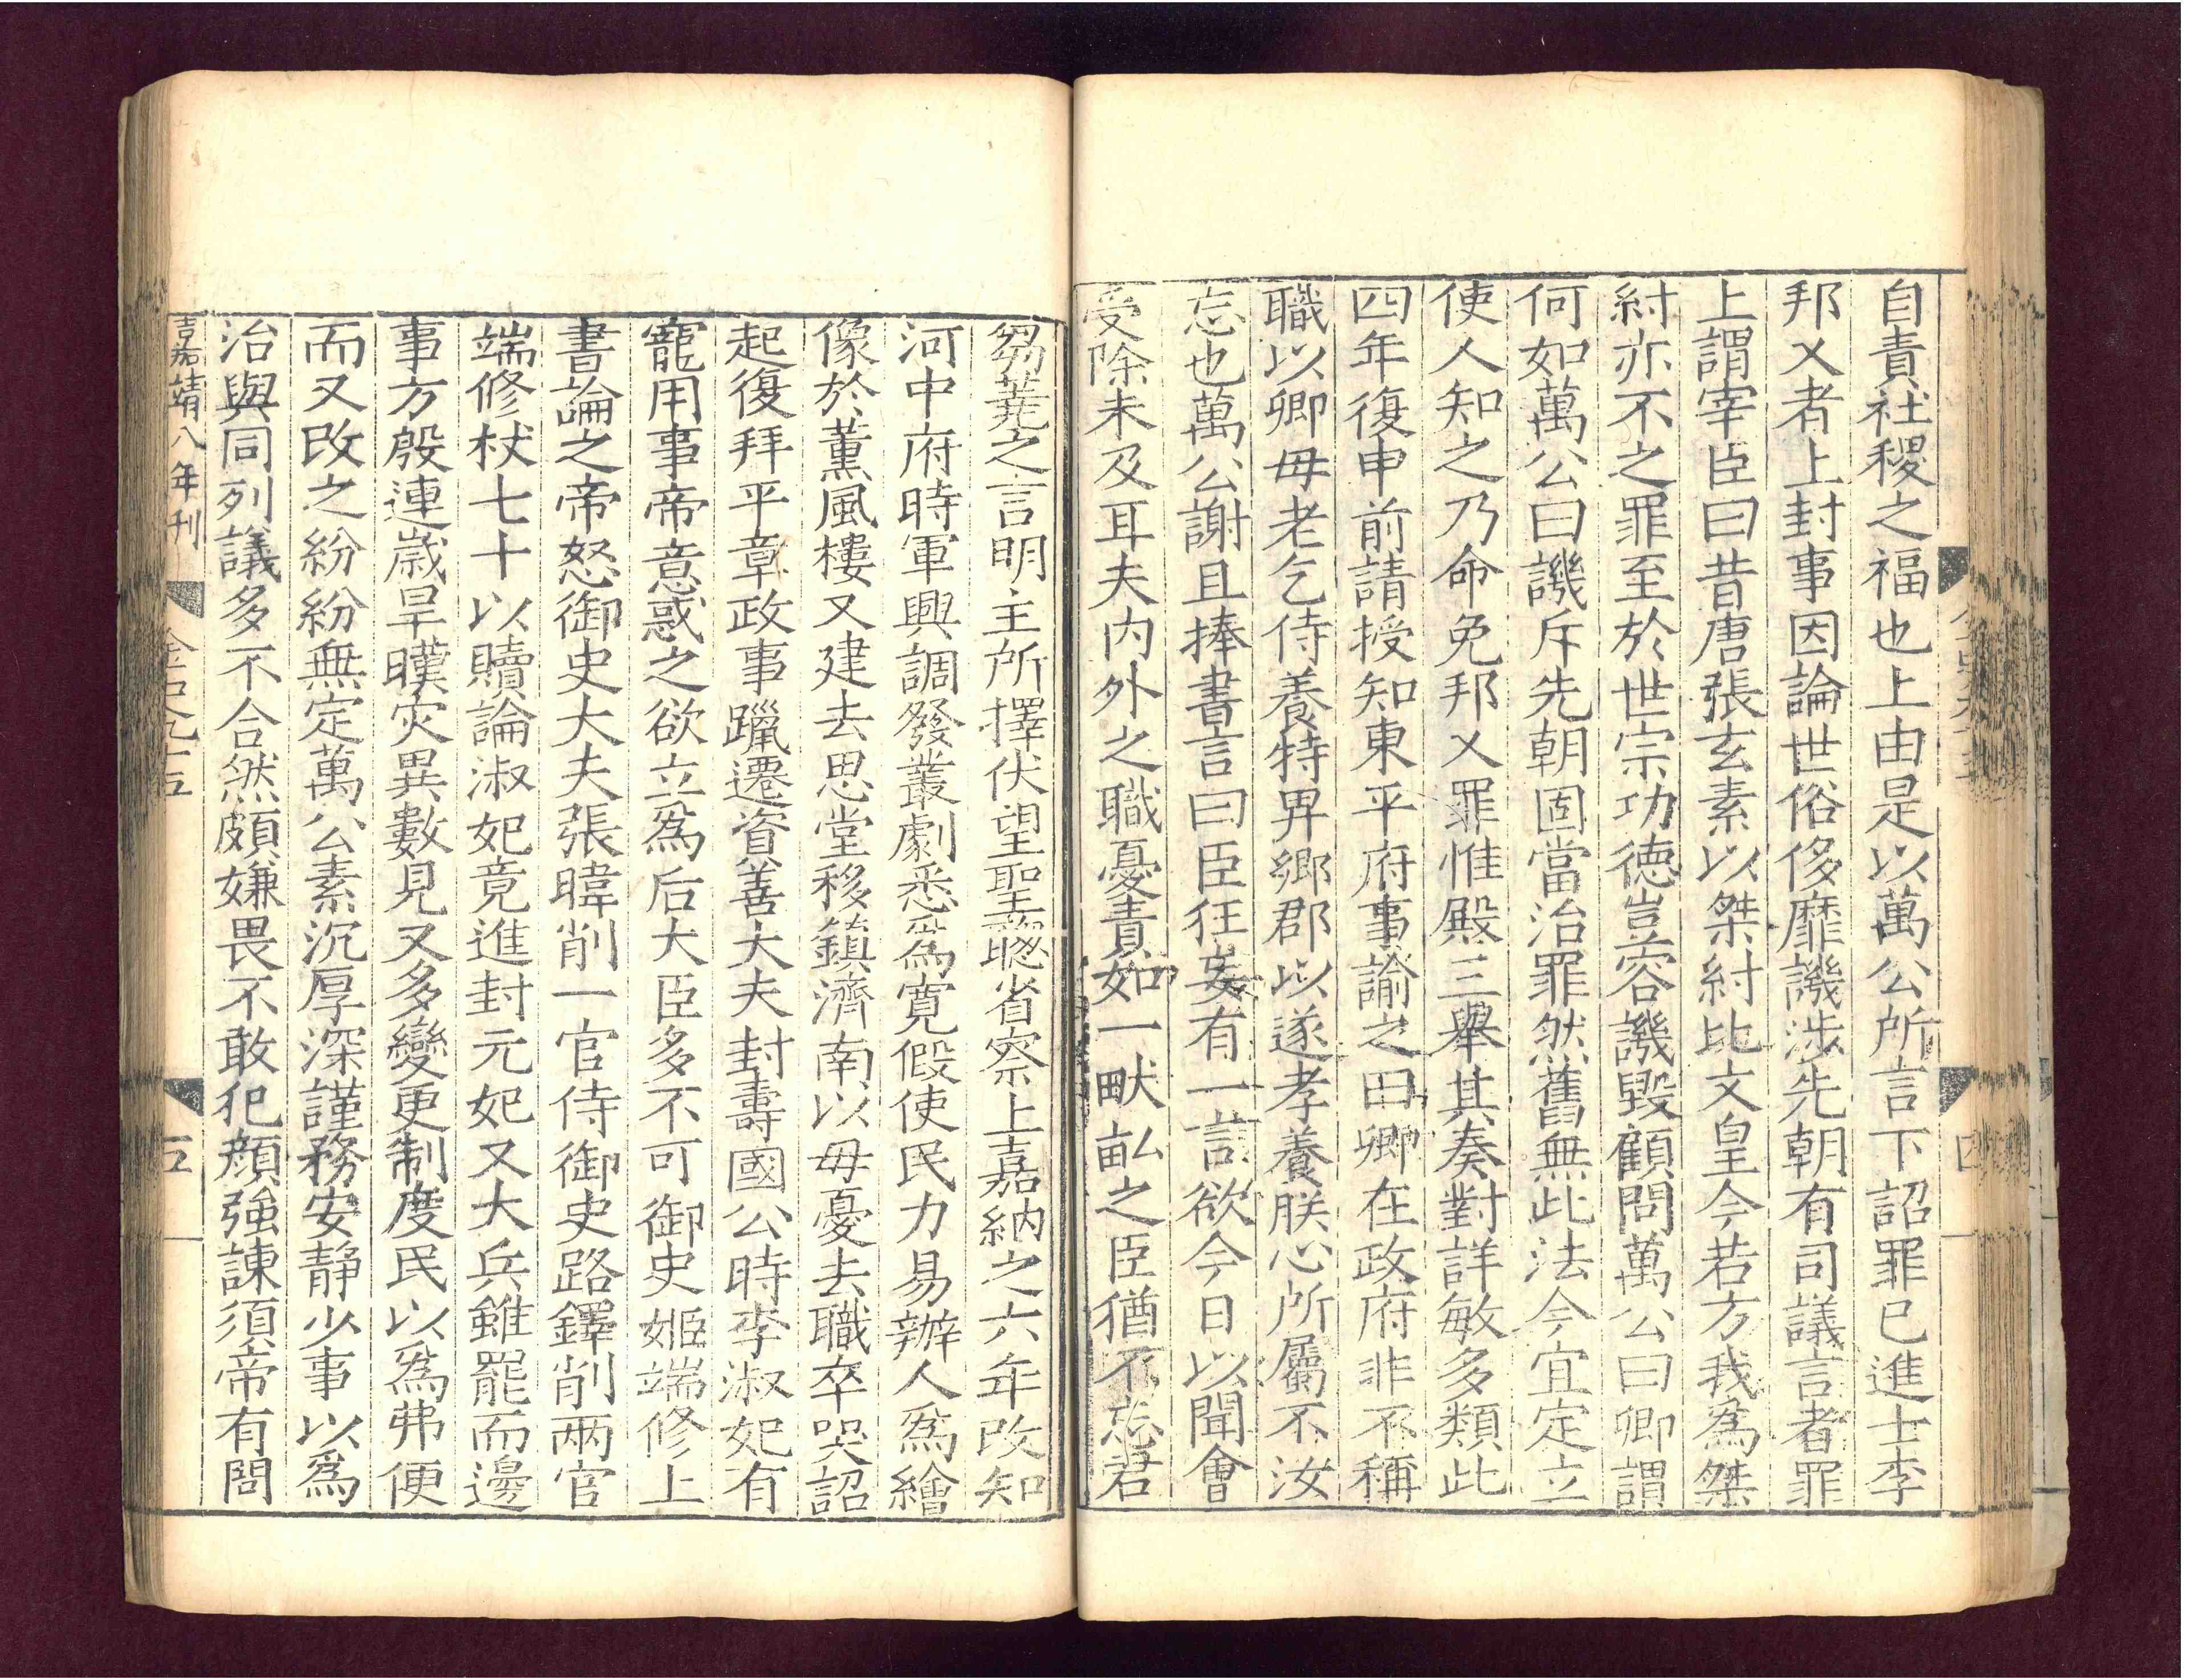 自責社稷之福也上由是以萬公所言下詔罪已進士李
邦乂者上封事因論世俗侈靡譏涉先朝有司議言者罪
上謂宰臣曰昔唐張玄素以桀紂比文皇今若方我為桀
紂亦不之罪至於世宗功德豈容譏毀顧問萬公曰卿謂
何如萬公曰譏斥先朝固當治罪然舊無此法今宜定立
使人知之乃命免邦乂罪惟殿三舉其奏對詳敏多類此
四年復申前請授知東平府事諭之曰卿在政府非不稱
職以卿母老乞侍養特畀鄉郡以遂孝養朕心所屬不汝
忘也萬公謝且捧書言曰臣狂妄有一言欲今日以聞會
受除未及耳夫内外之職憂責如一畎畝之臣猶不忘君
芻蕘之言明主所擇伏望聖聰省察上嘉納之六年改知
河中府時軍興調發叢劇悉為寬假使民力易辦人為繪
像於薰風樓又建去思堂移鎮濟南以母憂去職卒哭詔
起復拜平章政事躐遷資善大夫封壽國公時李淑妃有
寵用事帝意惑之欲立為后大臣多不可御史姬端修上
書論之帝怒御史大夫張暐削一官侍御史路鐸削兩官
端修杖七十以贖論淑妃竟進封元妃又大兵雖罷而邊
事方殷連歲旱暵灾異數見又多變更制度民以為弗便
而又改之紛紛無定萬公素沉厚深謹務安静少事以為
治與同列議多不合然頗嫌畏不敢犯顔強諫須帝有問
嘉靖八年刊
金史九十五
五